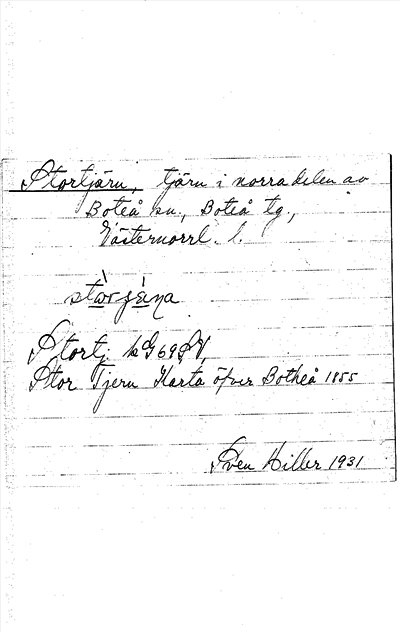 Stortjärn, tjärn i norra delen av
Boteå sn., Boteå tg.,
Västernorrl. l.
Stortj. kG69SV,
Stor Tjern Karta öfver Botheå 1855
Sven Hiller 1931